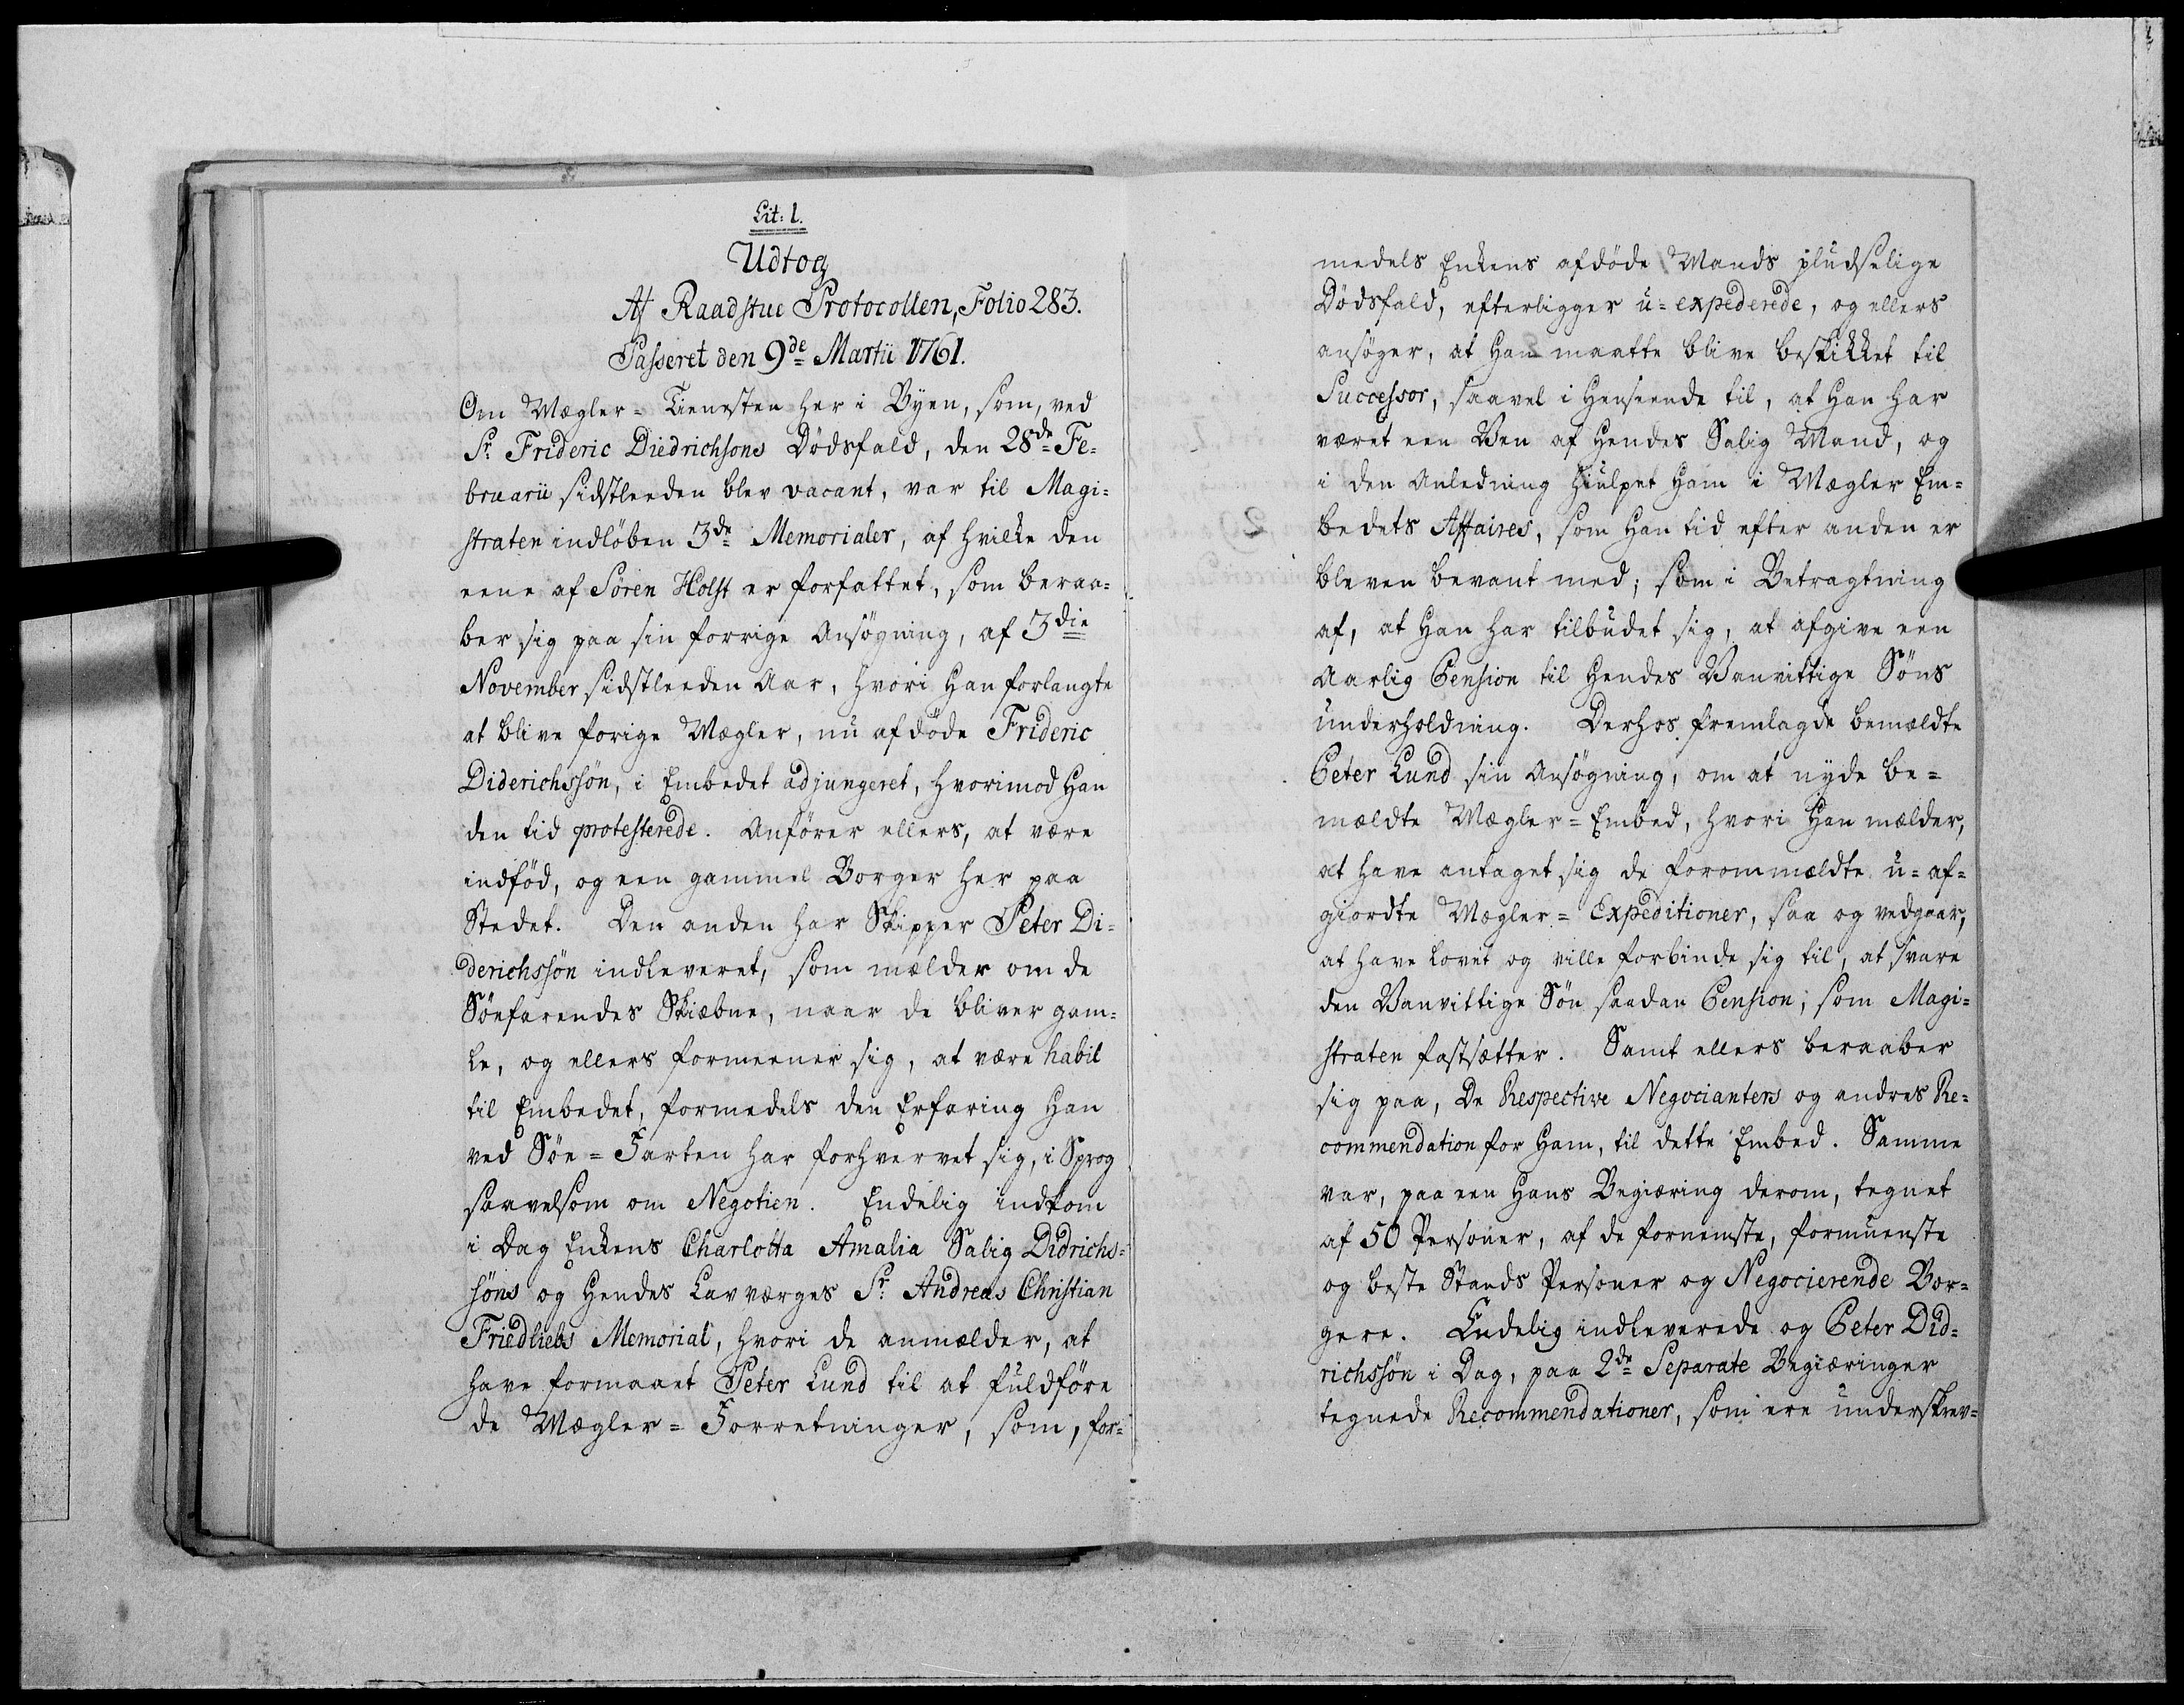 Lit: 1.
Udtog
Af Raadstue Protocollen, Folio 283.
Passeret den 9de Martii 1761.
Om Mægler = Tienesten her i Byen, som, ved
Sr. Frideric Diedrichsons Dødsfald, den 28de Fe=
bruarii sidstleeden blev vacant, var til Magi=
straten indløben 3de Memorialer, af hvilke den
eene af Søren Holst er forfattet, som beraa=
ber sig paa sin forrige Ansøgning, af 3die
November sidstleeden Aar, hvori Han forlangte
at blive forige Mægler, nu afdøde Frideric
Diderichssøn, i Embedet adjungeret, hvorimod Han
den tid protesterede. Anfører ellers, at være
indfød, og een gammel Borger her paa
Stedet. Den anden har Skipper Peter Di=
derichssøn indleveret, som melder om de
Søefarendes Skiæbne, naar de bliver gam=
le, og ellers formeener sig, at være habil
til Embedet, formedels den Erfaring Han
ved Søe = Farten har forhvervet sig, i Sprog
saavelsom om Negotien. Endelig indkom
i Dag Enkens Charlotta Amalia Salig Didrichs=
søns og Hendes Lavværges Sr. Andreas Christian
Friedliebs Memorial, hvori de anmælder, at
have formaaet Peter Lund til at fuldføre
de Mægler = Forretninger, som, for=
medels Enkens afdøde Mands pludselige
Dødsfald, efterligger u=expederede, og ellers
ansøger, at Han maatte blive beskikket til
Successor, saavel i Henseende til, at Han har
været een Ven af Hendes Salig Mand, og
i den Anledning hiulpet Ham i Mægler Em=
bedets Affaires, som Han tid efter anden er
bleven bevant med; som i Betragtning
af, at Han har tilbudet sig, at afgive een
Aarlig Pension til Hendes Vanvittige Søns
underholdning. Derhos fremlagde bemældte
Peter Lund sin Ansøgning, om at nyde be=
mældte Mægler = Embed, hvori Han mælder,
at have antaget sig de forommældte u=af=
giordte Mægler = Expeditioner, saa og vedgaar,
at have lovet og ville forbinde sig til, at svare
den Vanvittige Søn saadan Pension, som Magi=
straten fastsætter. Samt ellers beraaber
sig paa, De Respective Negocianters og andres Re=
commendation for Ham, til dette Embed. Samme
var, paa een Hans Begiæring derom, tegnet
af 50 Personer, af de fornemste, formuenste
og beste Stands Personer og Negocierende Bor=
gere. Endelig indleverede og Peter Did=
richssøn i Dag, paa 2de Separate Begiæringer
tegnede Recommendationer, som ere underskrev=